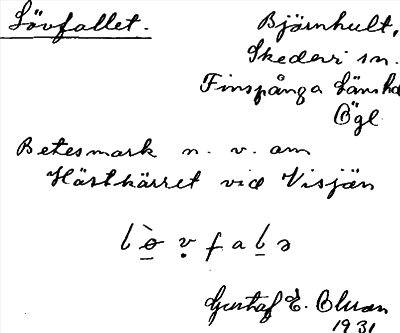 Lövfallet.
Björnhult,
Skedevi sn.
Finspånga Länshd
Ögl
Betesmark n. v. om
Hästkärret vid Visjön
Gustaf E.
1931